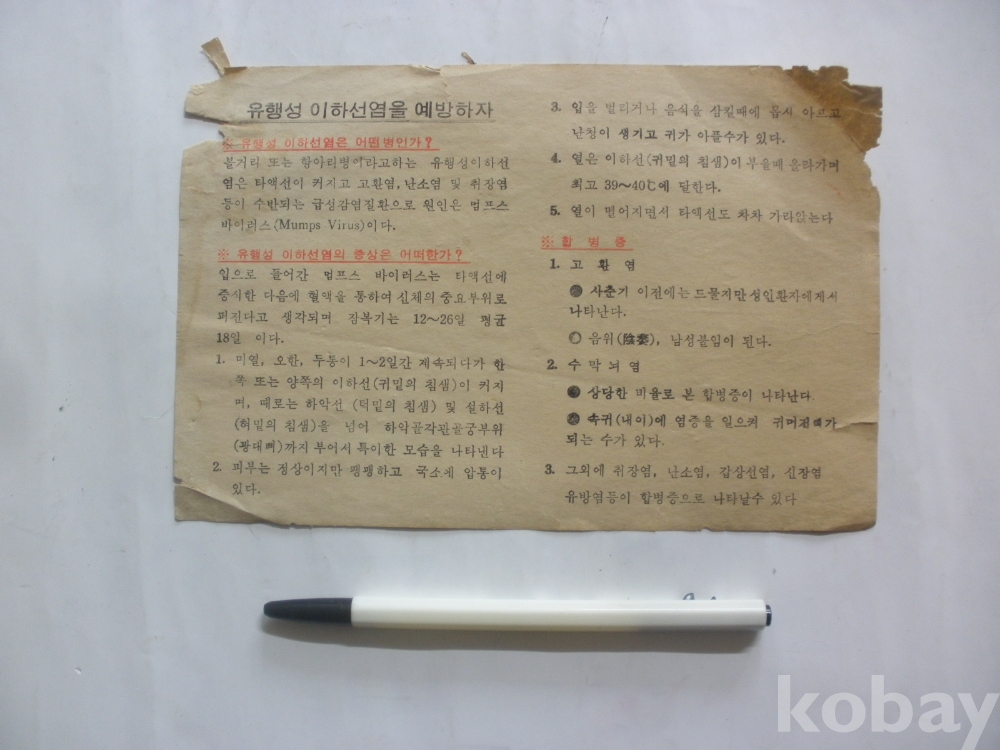 유행성 이하선염을 예방하자
※ 유행성 이하선염은 어떤병인가?
볼거리 또는 항아리병이라고하는 유행성이하선
염은 타액선이 커지고 고환염, 난소염 및 취장염
등이 수반되는 급성감염질환으로 원인은 멈프스
바이러스(Mumps Virus)이다.
※ 유행성 이하선염의 증상은 어떠한가?
입으로 들어간 멈프스 바이러스는 타액선에
증식한 다음에 혈액을 통하여 신체의 중요부위로
퍼진다고 생각되며 잠복기는 12～26일 평균
18일 이다.
1. 미열, 오한, 두통이 1～2일간 계속되다가 한
쪽 또는 양쪽의 이하선(귀밑의 침샘)이 커지
며, 때로는 하악선 (턱밑의 침샘) 및 설하선
(혀밑의 침샘)을 넘어 하악골각관골궁부위
(광대뼈)까지 부어서 특이한 모습을 나타낸다
2. 피부는 정상이지만 팽팽하고 국소제 압통이
있다.
3. 입을 벌리거나 음식을 삼킬때에 몹시 아프고
난청이 생기고 귀가 아플수가 있다.
4. 열은 이하선(귀밑의 침샘)이 부을때 올라가며
최고 39～40℃에 달한다.
5. 열이 떨어지면서 타액선도 차차 가라앉는다
※ 합 병 증
1. 고 환 염
● 사춘기 이전에는 드물지만 성인환자에게서
나타난다.
○ 음위(陰萎), 남성불임이 된다.
2. 수 막 뇌 염
● 상당한 비율로 본 합병증이 나타난다.
● 속귀(내이)에 염증을 일으켜 귀머거리가
되는 수가 있다.
3. 그외에 취장염, 난소염, 갑상선염, 신장염
유방염등이 합병증으로 나타날수 있다
kobay